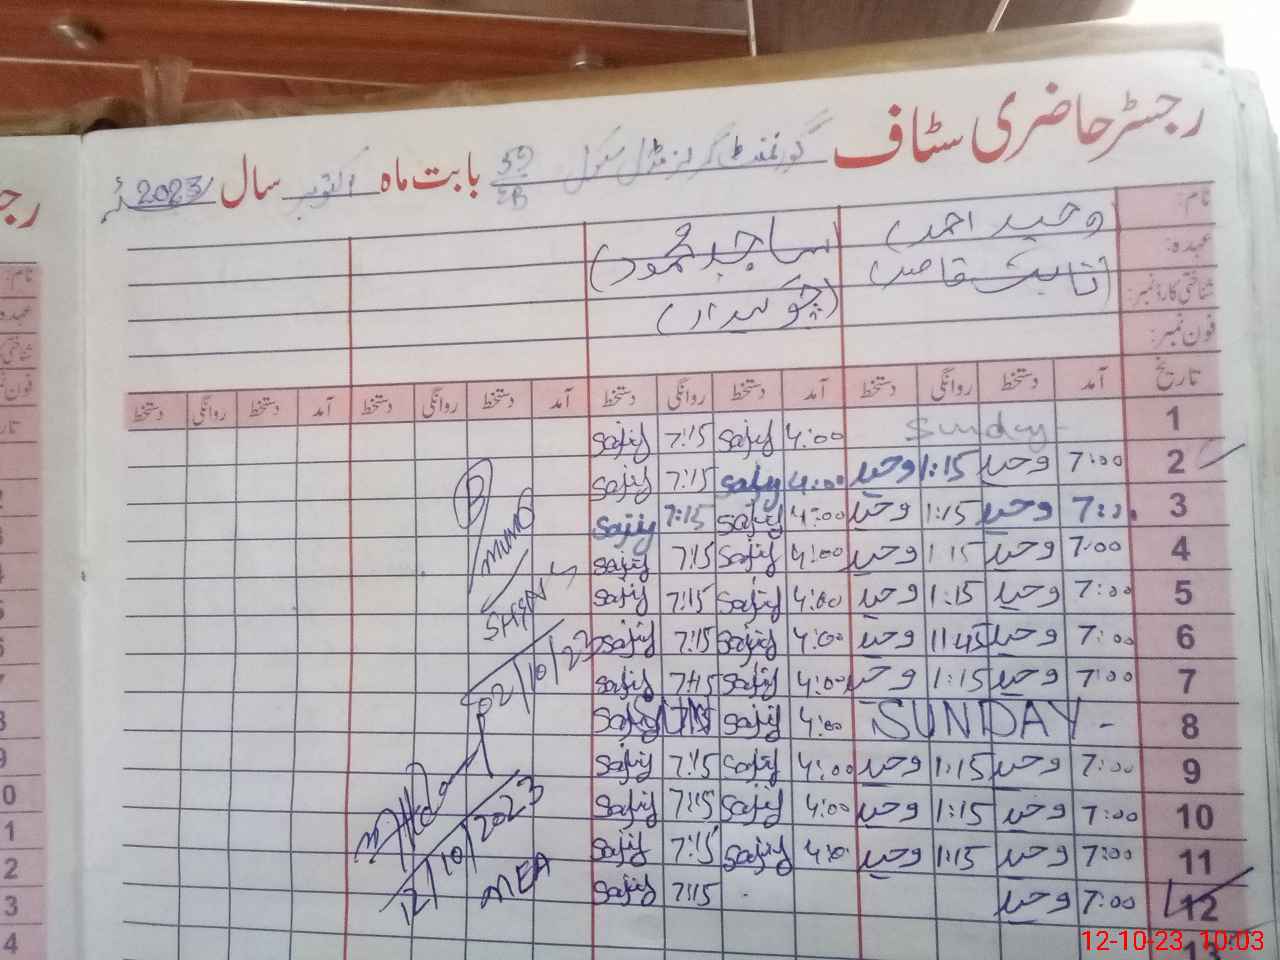 رجسٹر حاضری سٹاف گورنمنٹ گرلز مڈل سکول 59/EB بابت ماہ اکتوبر سال 2023ء
نام: وحید احمد ساجد محمود
عہدہ: (نائب قاصد) (چوکیدار)
شناختی کارڈ نمبر:
فون نمبر:
تاریخ آمد دستخط روانگی دستخط آمد دستخط روانگی دستخط آمد دستخط روانگی دستخط آمد دستخط روانگی دستخط
1 Sunday 4:00 Sajid 7:15 Sajid
2 7:00 وحید 1:15 وحید 4:00 Sajid 7:15 Sajid
3 7:00 وحید 1:15 وحید 4:00 Sajid 7:15 Sajid
4 7:00 وحید 1:15 وحید 4:00 Sajid 7:15 Sajid
5 7:00 وحید 1:15 وحید 4:00 Sajid 7:15 Sajid
6 7:00 وحید 11:45 وحید 4:00 Sajid 7:15 Sajid
7 7:00 وحید 1:15 وحید 4:00 Sajid 7:15 Sajid
8 SUNDAY 4:00 Sajid Sajid
9 7:00 وحید 1:15 وحید 4:00 Sajid 7:15 Sajid
10 7:00 وحید 1:15 وحید 4:00 Sajid 7:15 Sajid
11 7:00 وحید 1:15 وحید 4:00 Sajid 7:15 Sajid
12 7:00 وحید 7:15 Sajid
13
02/10/23
12/10/2023
MEA
12-10-23 10:03